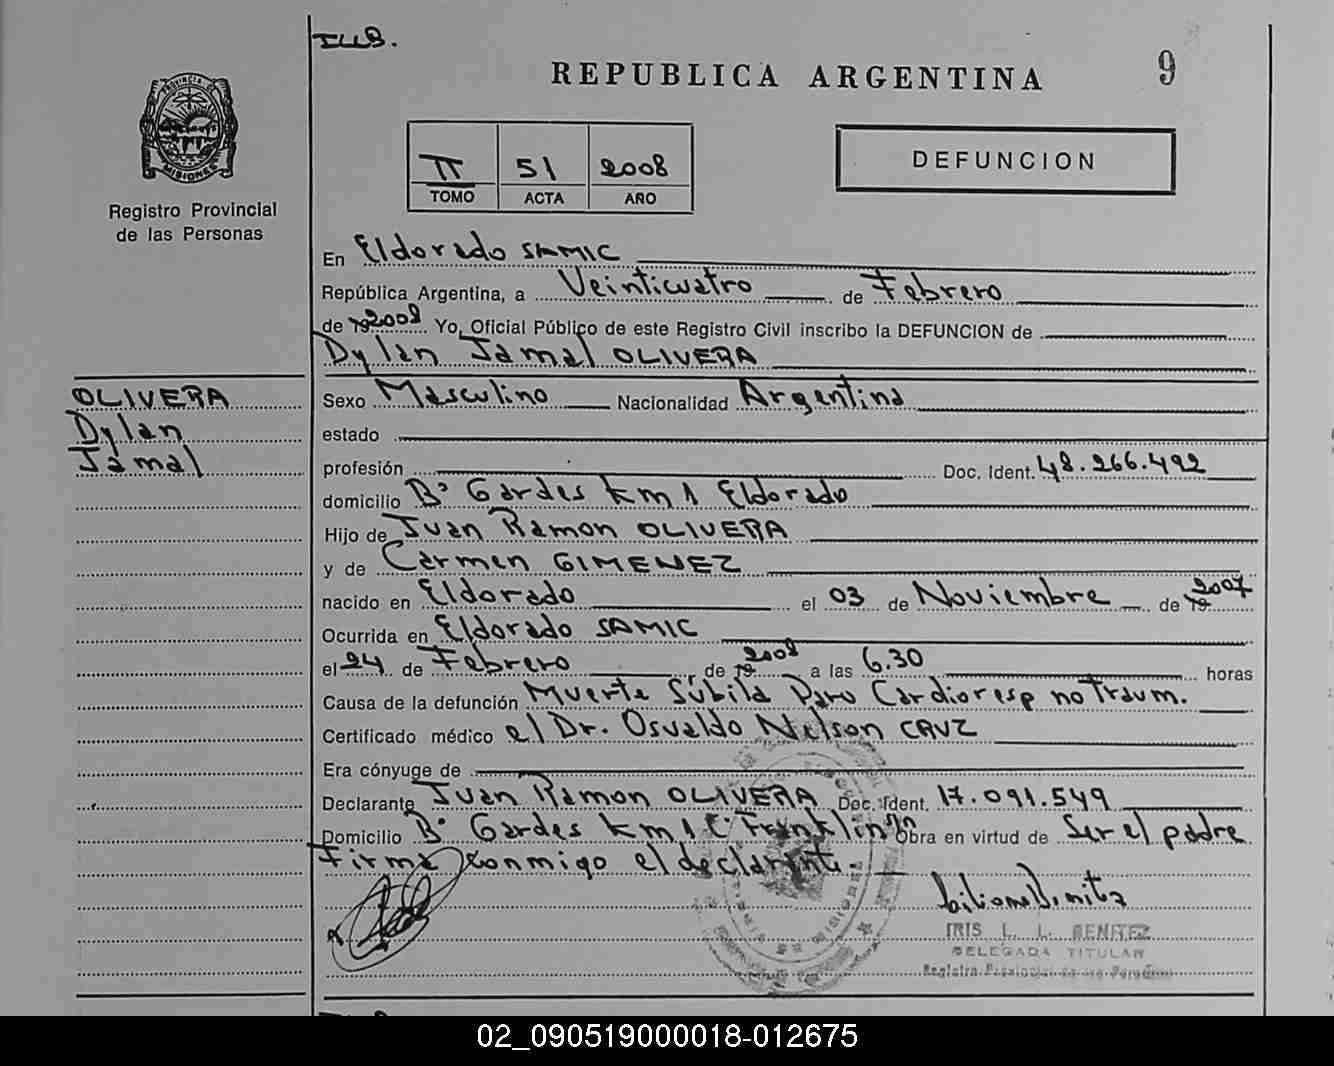 REPUBLICA ARGENTINA
9
PROVINCIA DE
MISIONES
Registro Provincial
de las Personas
II 51 2008
TOMO ACTA AÑO
DEFUNCION
En Eldorado SAMIC
República Argentina, a Veinticuatro de Febrero
de 19 2008 Yo, Oficial Público de este Registro Civil inscribo la DEFUNCION de
Dylan Jamal OLIVERA
OLIVERA
Dylan
Jamal
Sexo Masculino Nacionalidad Argentina
estado
profesión Doc. Ident. 48.266.492
domicilio Bº Gardes km 1 Eldorado
Hijo de Juan Ramon OLIVERA
y de Carmen GIMENEZ
nacido en Eldorado el 03 de Noviembre de 19 2007
Ocurrida en Eldorado SAMIC
el 24 de Febrero de 19 2008 a las 6.30 horas
Causa de la defunción Muerte Súbita Paro Cardioresp no Traum.
Certificado médico el Dr. Osvaldo Nelson CRUZ
Era cónyuge de
Declarante Juan Ramon OLIVERA Doc. Ident. 17.091.549
Domicilio Bº Gardes km 1 C. Franklin s/n Obra en virtud de Ser el padre
Firma conmigo el declarante.
IRIS L. L. BENITEZ
DELEGADA TITULAR
Registro Provincial de las Personas
02_090519000018-012675